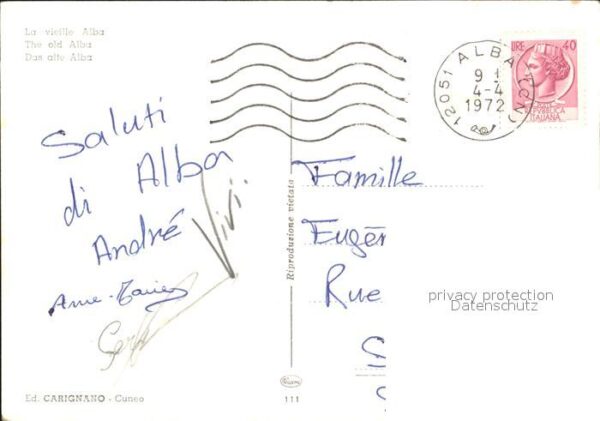 La vieille Alba
The old Alba
Das alte Alba
Saluti
di Alba
André Vivi.
Anne-
Ed. CARIGNANO - Cuneo
Riproduzione vietata
111
12051 ALBA (CN)
9 1
4-4
1972
LIRE 40
REPUBBLICA
ITALIANA
Famille
Eugèn
Rue
S
privacy protection
Datenschutz